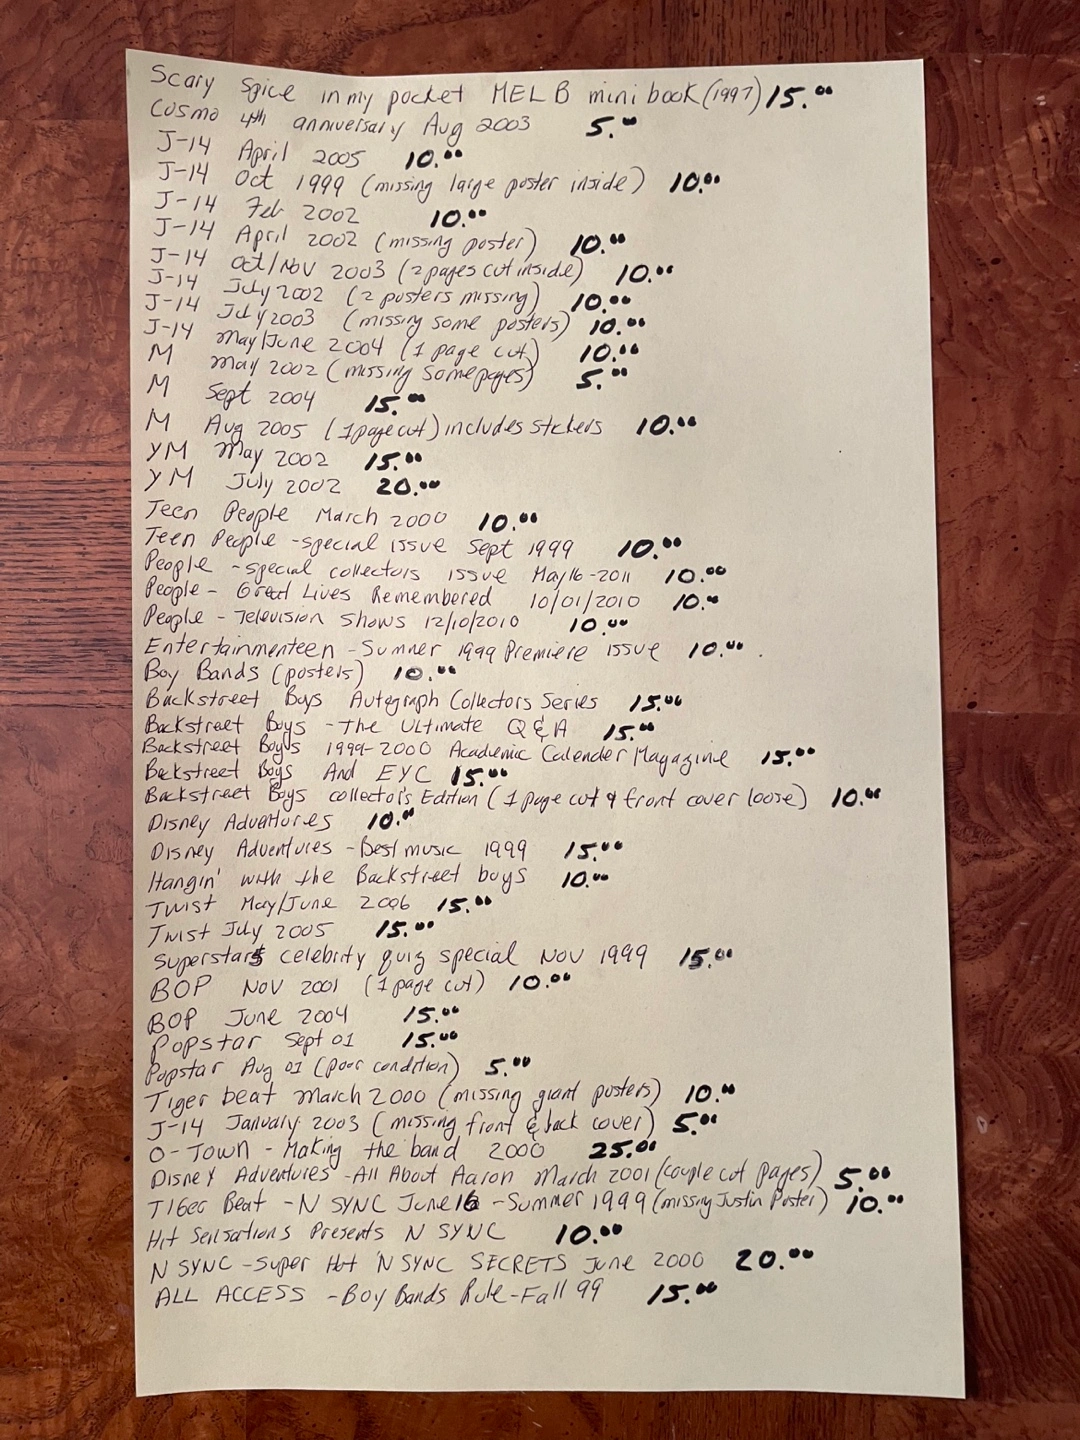 Scary Spice in my pocket MEL B mini book (1997) 15.00
Cosmo 4th anniversary Aug 2003 5.00
J-14 April 2005 10.00
J-14 Oct 1999 (missing large poster inside) 10.00
J-14 Feb 2002 10.00
J-14 April 2002 (missing poster) 10.00
J-14 Oct/Nov 2003 (2 pages cut inside) 10.00
J-14 July 2002 (2 posters missing) 10.00
J-14 July 2003 (missing some posters) 10.00
J-14 May/June 2004 (1 page cut) 10.00
M May 2002 (missing some pages) 5.00
M Sept 2004 15.00
M Aug 2005 (1 page cut) includes stickers 10.00
YM May 2002 15.00
YM July 2002 20.00
Teen People March 2000 10.00
Teen People - special issue Sept 1999 10.00
People - special collectors issue May 16 - 2011 10.00
People - Great Lives Remembered 10/01/2010 10.00
People - Television Shows 12/10/2010 10.00
Entertainmenteen - Summer 1999 Premiere issue 10.00
Boy Bands (posters) 10.00
Backstreet Boys Autograph Collectors Series 15.00
Backstreet Boys - The ULtimate Q & A 15.00
Backstreet Boys 1999-2000 Academic Calender Magazine 15.00
Backstreet Boys And EYC 15.00
Backstreet Boys collector's Edition (1 page cut & front cover loose) 10.00
Disney Adventures 10.00
Disney Adventures - Best music 1999 15.00
Hangin' with the Backstreet boys 10.00
Twist May/June 2006 15.00
Twist July 2005 15.00
Superstars celebrity quiz special Nov 1999 15.00
BOP Nov 2001 (1 page cut) 10.00
BOP June 2004 15.00
Popstar Sept 01 15.00
Popstar Aug 01 (poor condition) 5.00
Tiger beat March 2000 (missing giant posters) 10.00
J-14 January 2003 (missing front & back cover) 5.00
O-Town - Making the band 2000 25.00
Disney Adventures - All About Aaron March 2001 (couple cut pages) 5.00
Tiger Beat - N SYNC June 16 - Summer 1999 (missing Justin Poster) 10.00
Hit Sensations Presents N SYNC 10.00
N SYNC - Super Hot 'N SYNC SECRETS June 2000 20.00
ALL ACCESS - Boy Bands Rule - Fall 99 15.00